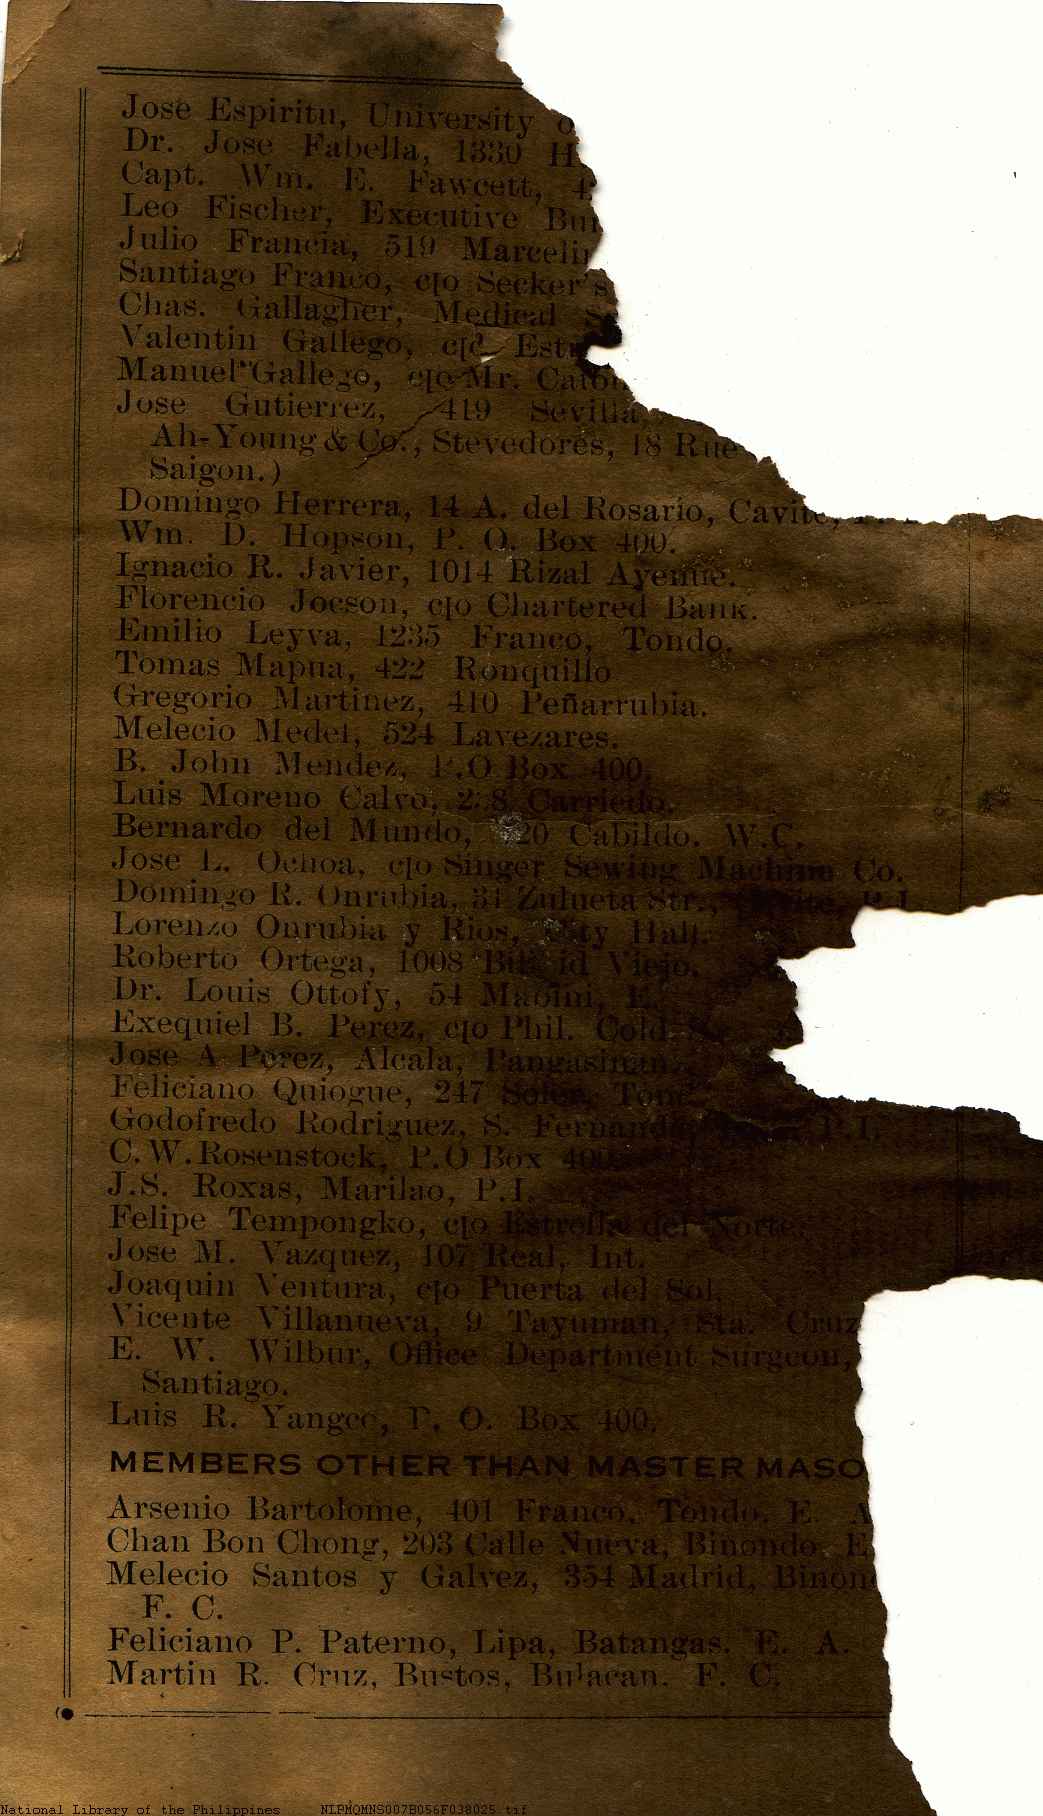 Jose Espiritu, University o
Dr. Jose Fabella, 1330 H
Capt. Wm. E. Fawcett, 4
Leo Fischer, Executive Bur
Julio Francia, 519 Marcelin
Santiago Franco, c|o Secker's
Chas. Gallagher, Medical S
Valentin Gallego, c|o Estr
Manuel Gallego, c|o Mr. Caton
Jose Gutierrez, 419 Sevilla,
Ah-Young & Co., Stevedores, 18 Rue
Saigon.)
Domingo Herrera, 14 A. del Rosario, Cavite, P. I.
Wm. D. Hopson, P. O. Box 400.
Ignacio R. Javier, 1014 Rizal Avenue.
Florencio Jocson, c|o Chartered Bank.
Emilio Leyva, 1235 Franco, Tondo.
Tomas Mapua, 422 Ronquillo
Gregorio Martinez, 410 Peñarrubia.
Melecio Medel, 524 Lavezares.
B. John Mendez, P.O Box 400.
Luis Moreno Calvo, Carriedo.
Bernardo del Mundo, Cabildo, W.C.
Jose L. Ochoa, c|o Singer Sewing Machine Co.
Domingo R. Onrubia, 31 Zulueta Str., Cavite, P.I.
Lorenzo Onrubia y Rios, City Hall.
Roberto Ortega, 1008 Bilibid Viejo.
Dr. Louis Ottofy, 54 Mabini, E.
Exequiel B. Perez, c|o Phil. Cold
Jose A Perez, Alcala, Pangasinan.
Feliciano Quiogue, 247 Soler, Tond
Godofredo Rodriguez, S. Fernando, P.I.
C.W. Rosenstock, P.O Box 400
J.S. Roxas, Marilao, P.I.
Felipe Tempongko, c|o Estrella del Norte.
Jose M. Vazquez, 107 Real, Int.
Joaquin Ventura, c|o Puerta del Sol.
Vicente Villanueva, 9 Tayuman, Sta. Cruz
E. W. Wilbur, Office Department Surgeon,
Santiago.
Luis R. Yangco, P. O. Box 400.
MEMBERS OTHER THAN MASTER MASO
Arsenio Bartolome, 401 Franco, Tondo. E. A
Chan Bon Chong, 203 Calle Nueva, Binondo. E
Melecio Santos y Galvez, 354 Madrid, Binon
F. C.
Feliciano P. Paterno, Lipa, Batangas. E. A.
Martin R. Cruz, Bustos, Bulacan. F. C.
National Library of the Philippines NLPMQMNS007B056F038025.tif